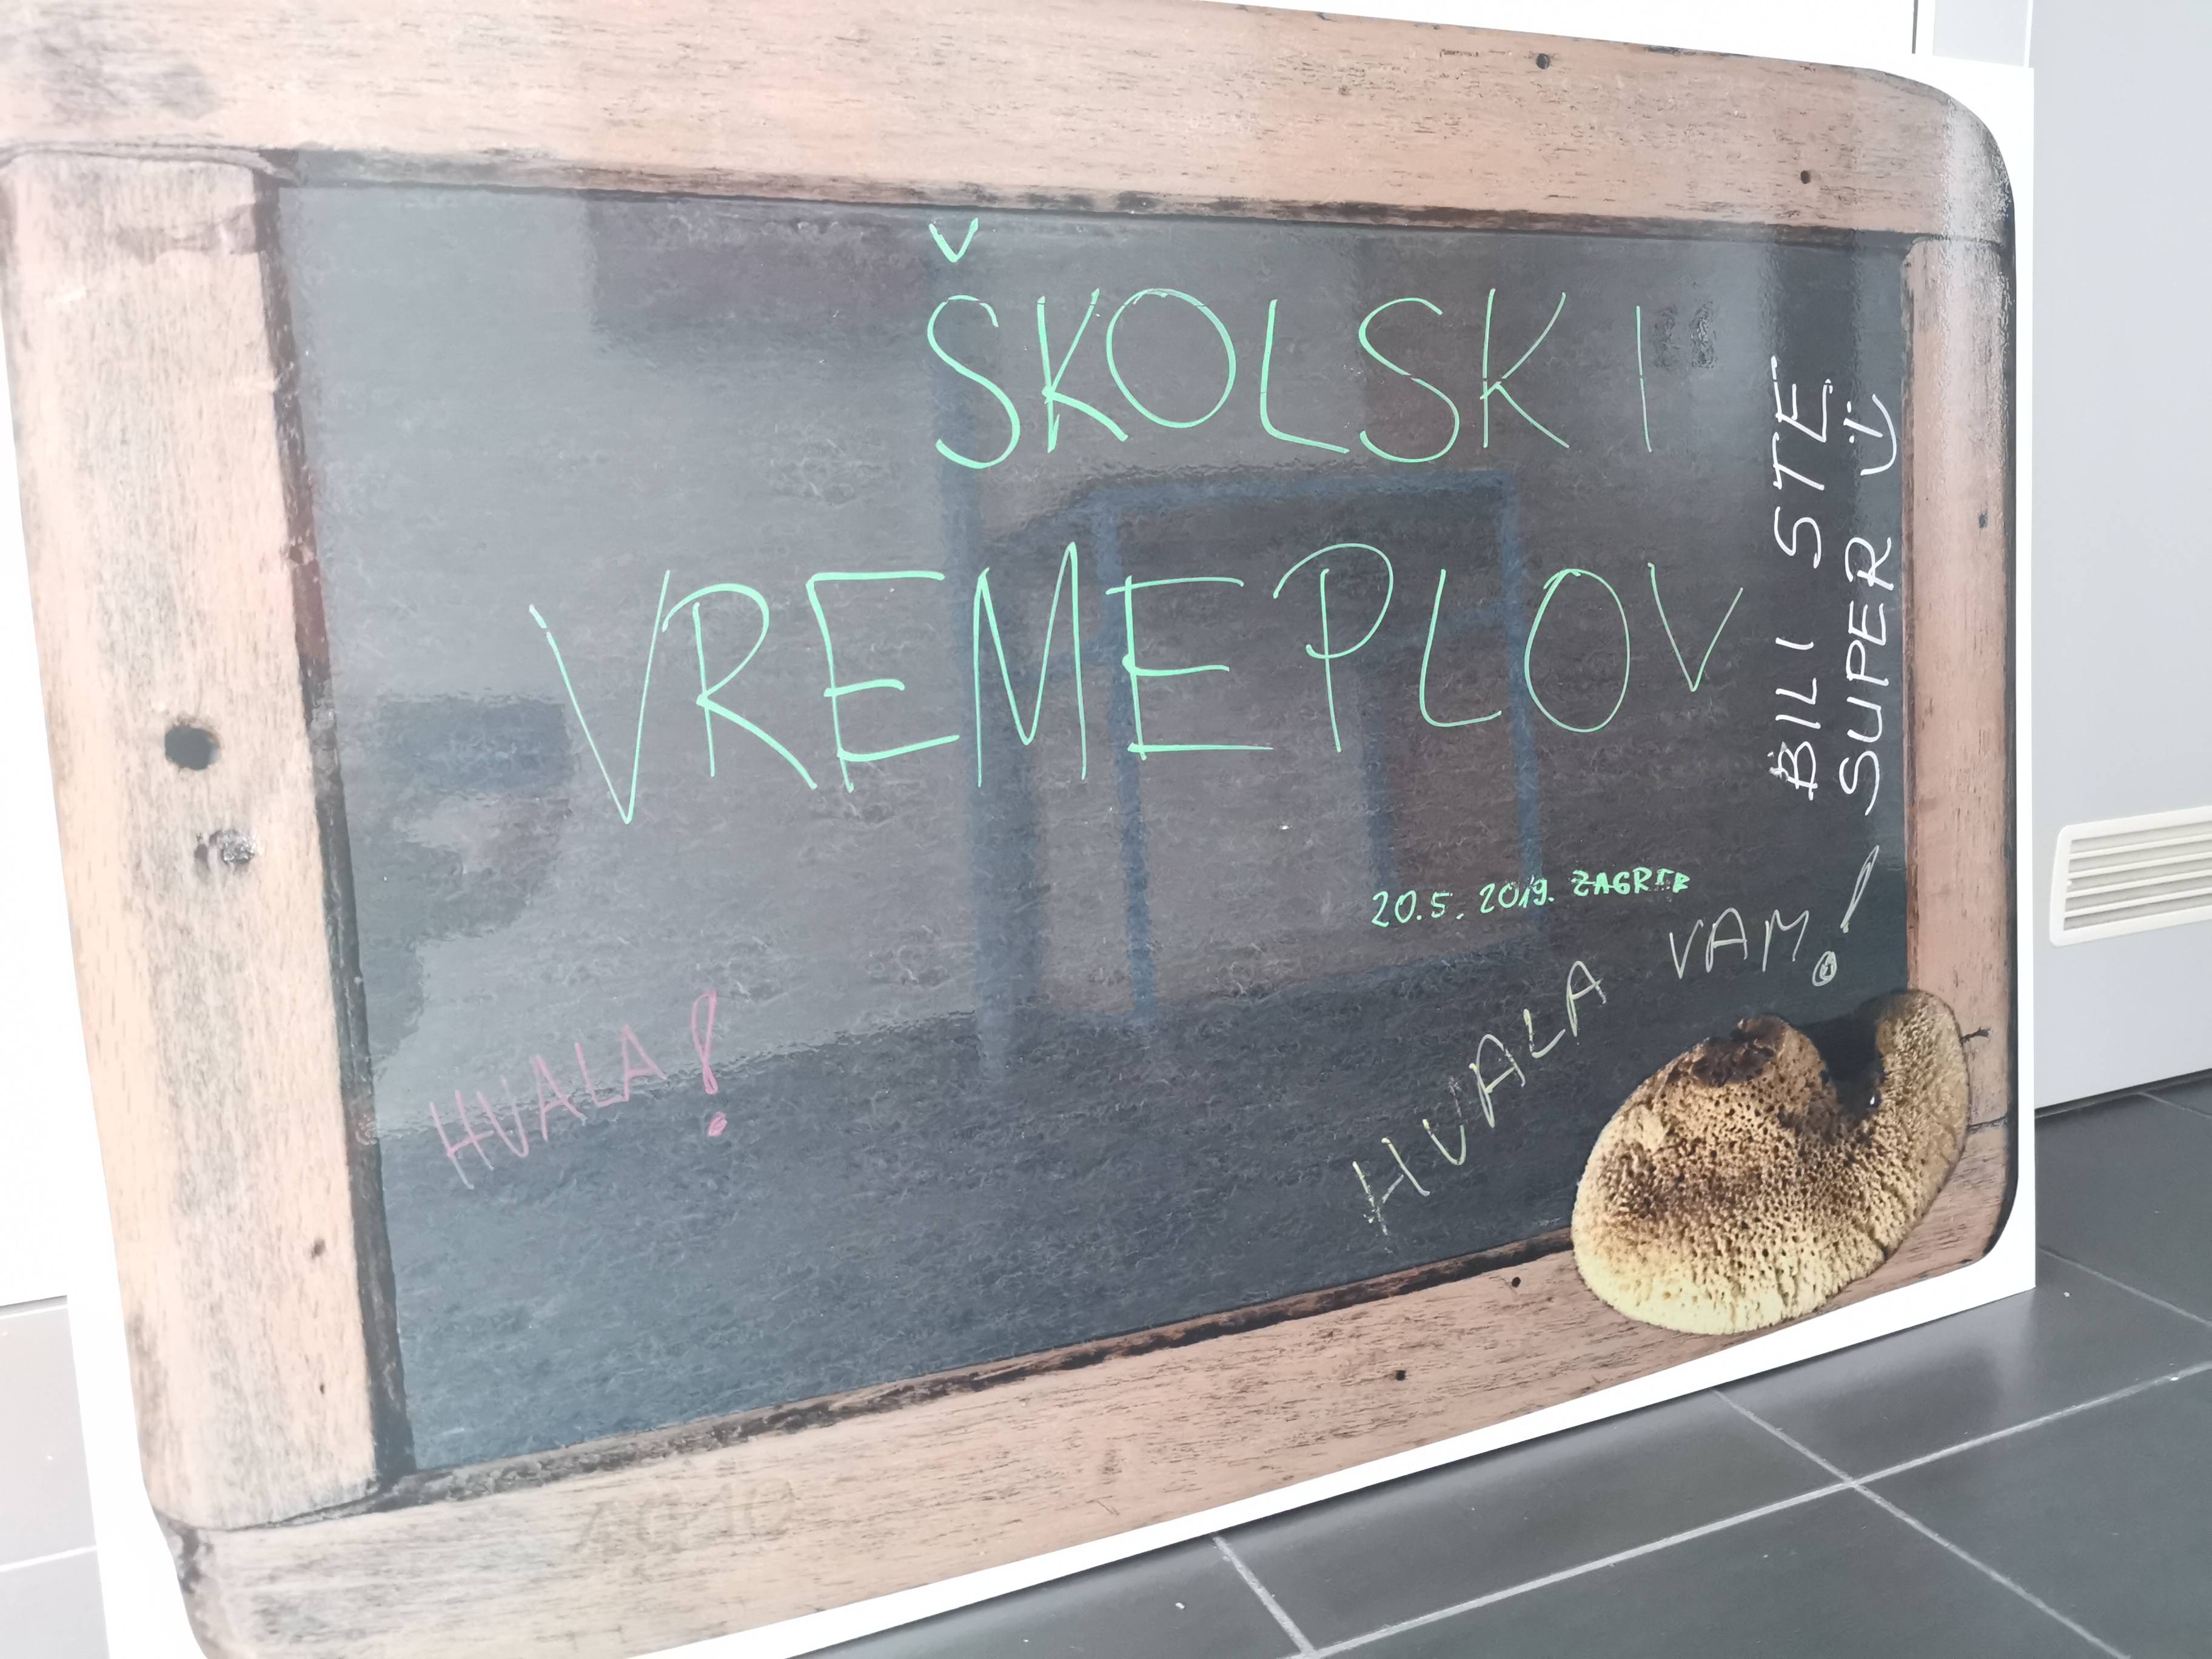 ŠKOLSKI
VREMEPLOV
BILI STE
SUPER :)
20.5.2019. ZAGREB
HVALA VAM!
HVALA!